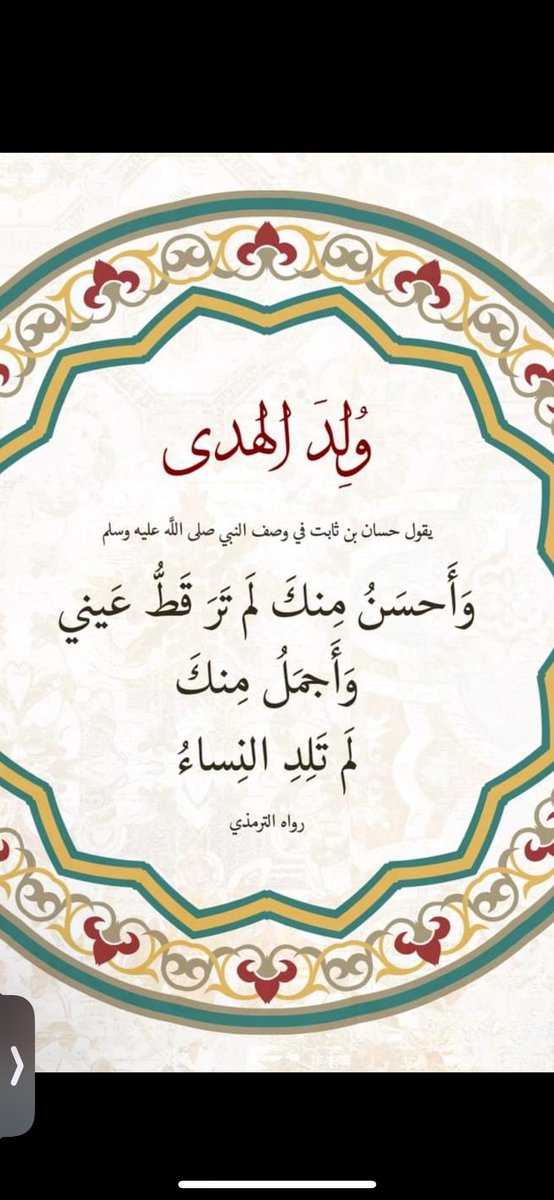 وُلِدَ الهدى
يقول حسان بن ثابت في وصف النبي صلى اللَّه عليه وسلم
وَأَحسَنُ مِنكَ لَم تَرَ قَطُّ عَيني
وَأَجمَلُ مِنكَ
لَم تَلِدِ النِساءُ
رواه الترمذي